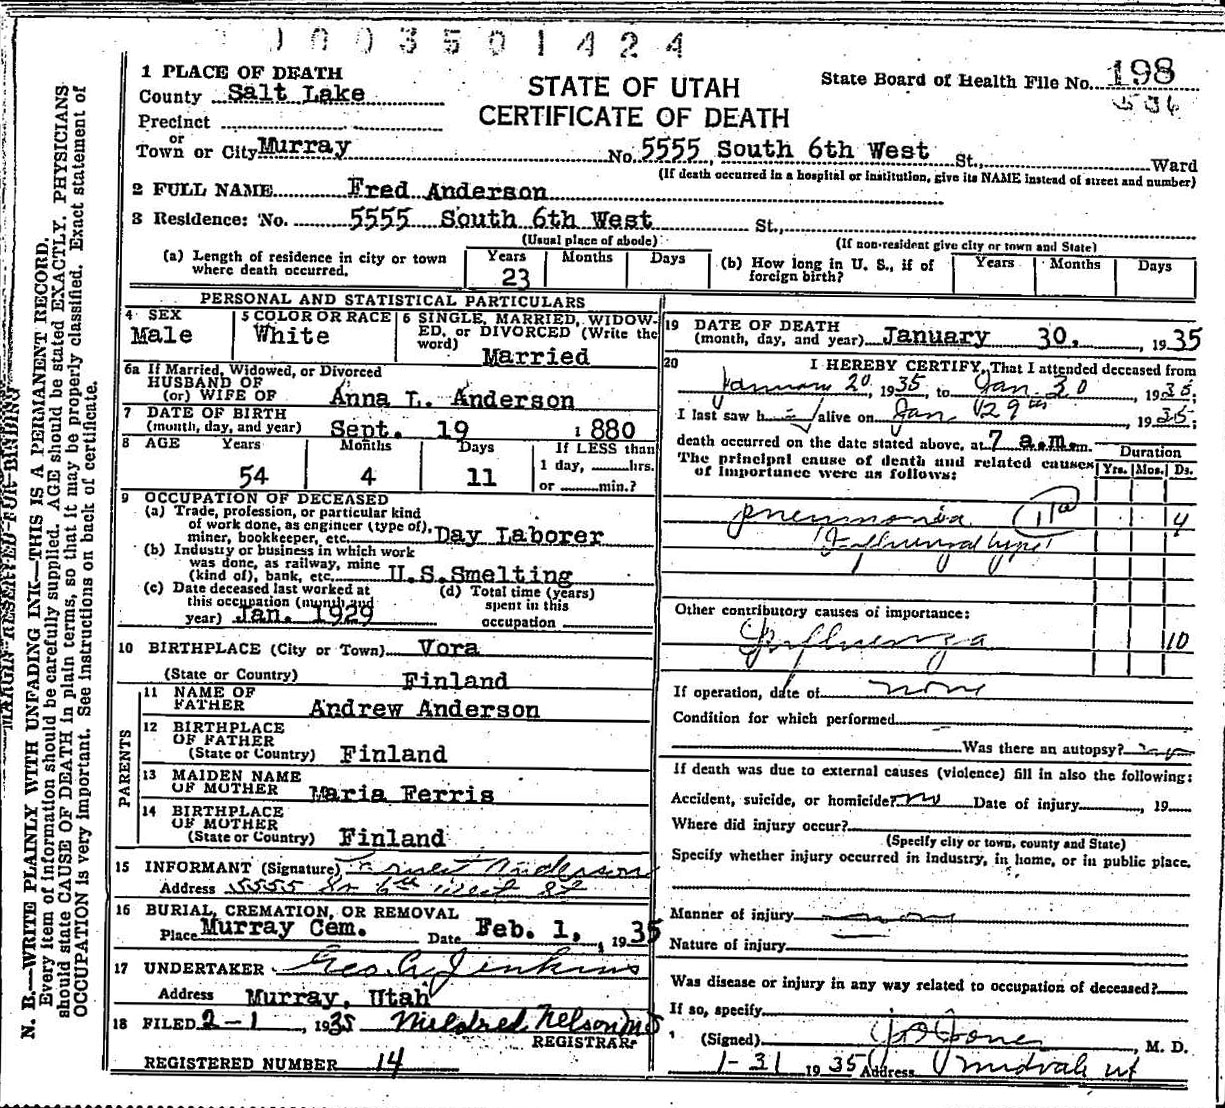 0003501424
1 PLACE OF DEATH
County Salt Lake
Precinct
or
Town or City Murray
STATE OF UTAH
CERTIFICATE OF DEATH
State Board of Health File No. 198
No. 5555 South 6th West St., Ward
(If death occurred in a hospital or institution, give its NAME instead of street and number)
2 FULL NAME Fred Anderson
3 Residence: No. 5555 South 6th West St.,
(Usual place of abode)
(If non-resident give city or town and State)
(a) Length of residence in city or town where death occurred. Years 23 Months Days
(b) How long in U. S., if of foreign birth? Years Months Days
PERSONAL AND STATISTICAL PARTICULARS
4 SEX
Male
5 COLOR OR RACE
White
6 SINGLE, MARRIED, WIDOWED, or DIVORCED (Write the word)
Married
6a If Married, Widowed, or Divorced
HUSBAND OF
(or) WIFE OF Anna L. Anderson
7 DATE OF BIRTH
(month, day, and year) Sept. 19 1880
8 AGE Years Months Days If LESS than
54 4 11 1 day, hrs.
or min.?
9 OCCUPATION OF DECEASED
(a) Trade, profession, or particular kind
of work done, as engineer (type of),
miner, bookkeeper, etc. Day Laborer
(b) Industry or business in which work
was done, as railway, mine
(kind of), bank, etc. U.S.Smelting
(c) Date deceased last worked at
this occupation (month and
year) Jan. 1929
(d) Total time (years)
spent in this
occupation
10 BIRTHPLACE (City or Town) Vora
(State or Country) Finland
PARENTS
11 NAME OF
FATHER Andrew Anderson
12 BIRTHPLACE
OF FATHER
(State or Country) Finland
13 MAIDEN NAME
OF MOTHER Maria Ferris
14 BIRTHPLACE
OF MOTHER
(State or Country) Finland
15 INFORMANT (Signature) Anderson
Address 5555 So 6th West St
16 BURIAL, CREMATION, OR REMOVAL
Place Murray Cem. Date Feb. 1, 1935
17 UNDERTAKER Geo. A. Jenkins
Address Murray, Utah
18 FILED 2-1, 1935 Mildred Nelson MD
REGISTRAR
REGISTERED NUMBER 14
19 DATE OF DEATH
(month, day, and year) January 30, 1935
20 I HEREBY CERTIFY, That I attended deceased from
January 20, 1935, to Jan. 30, 1935;
I last saw h alive on Jan 29th, 1935;
death occurred on the date stated above, at 7 a.m. m.
The principal cause of death and related causes
of importance were as follows:
Duration
Yrs. Mos. Ds.
pneumonia 4
Influenzal type
Other contributory causes of importance:
Influenza 10
If operation, date of none
Condition for which performed
Was there an autopsy? no
If death was due to external causes (violence) fill in also the following:
Accident, suicide, or homicide? no Date of injury , 19
Where did injury occur?
(Specify city or town, county and State)
Specify whether injury occurred in industry, in home, or in public place.
Manner of injury none
Nature of injury
Was disease or injury in any way related to occupation of deceased?
If so, specify
(Signed) Jones, M. D.
1-31 1935 Address Midvale Ut
MARGIN RESERVED FOR BINDING
N. B.—WRITE PLAINLY WITH UNFADING INK—THIS IS A PERMANENT RECORD.
Every item of information should be carefully supplied. AGE should be stated EXACTLY. PHYSICIANS
should state CAUSE OF DEATH in plain terms, so that it may be properly classified. Exact statement of
OCCUPATION is very important. See instructions on back of certificate.